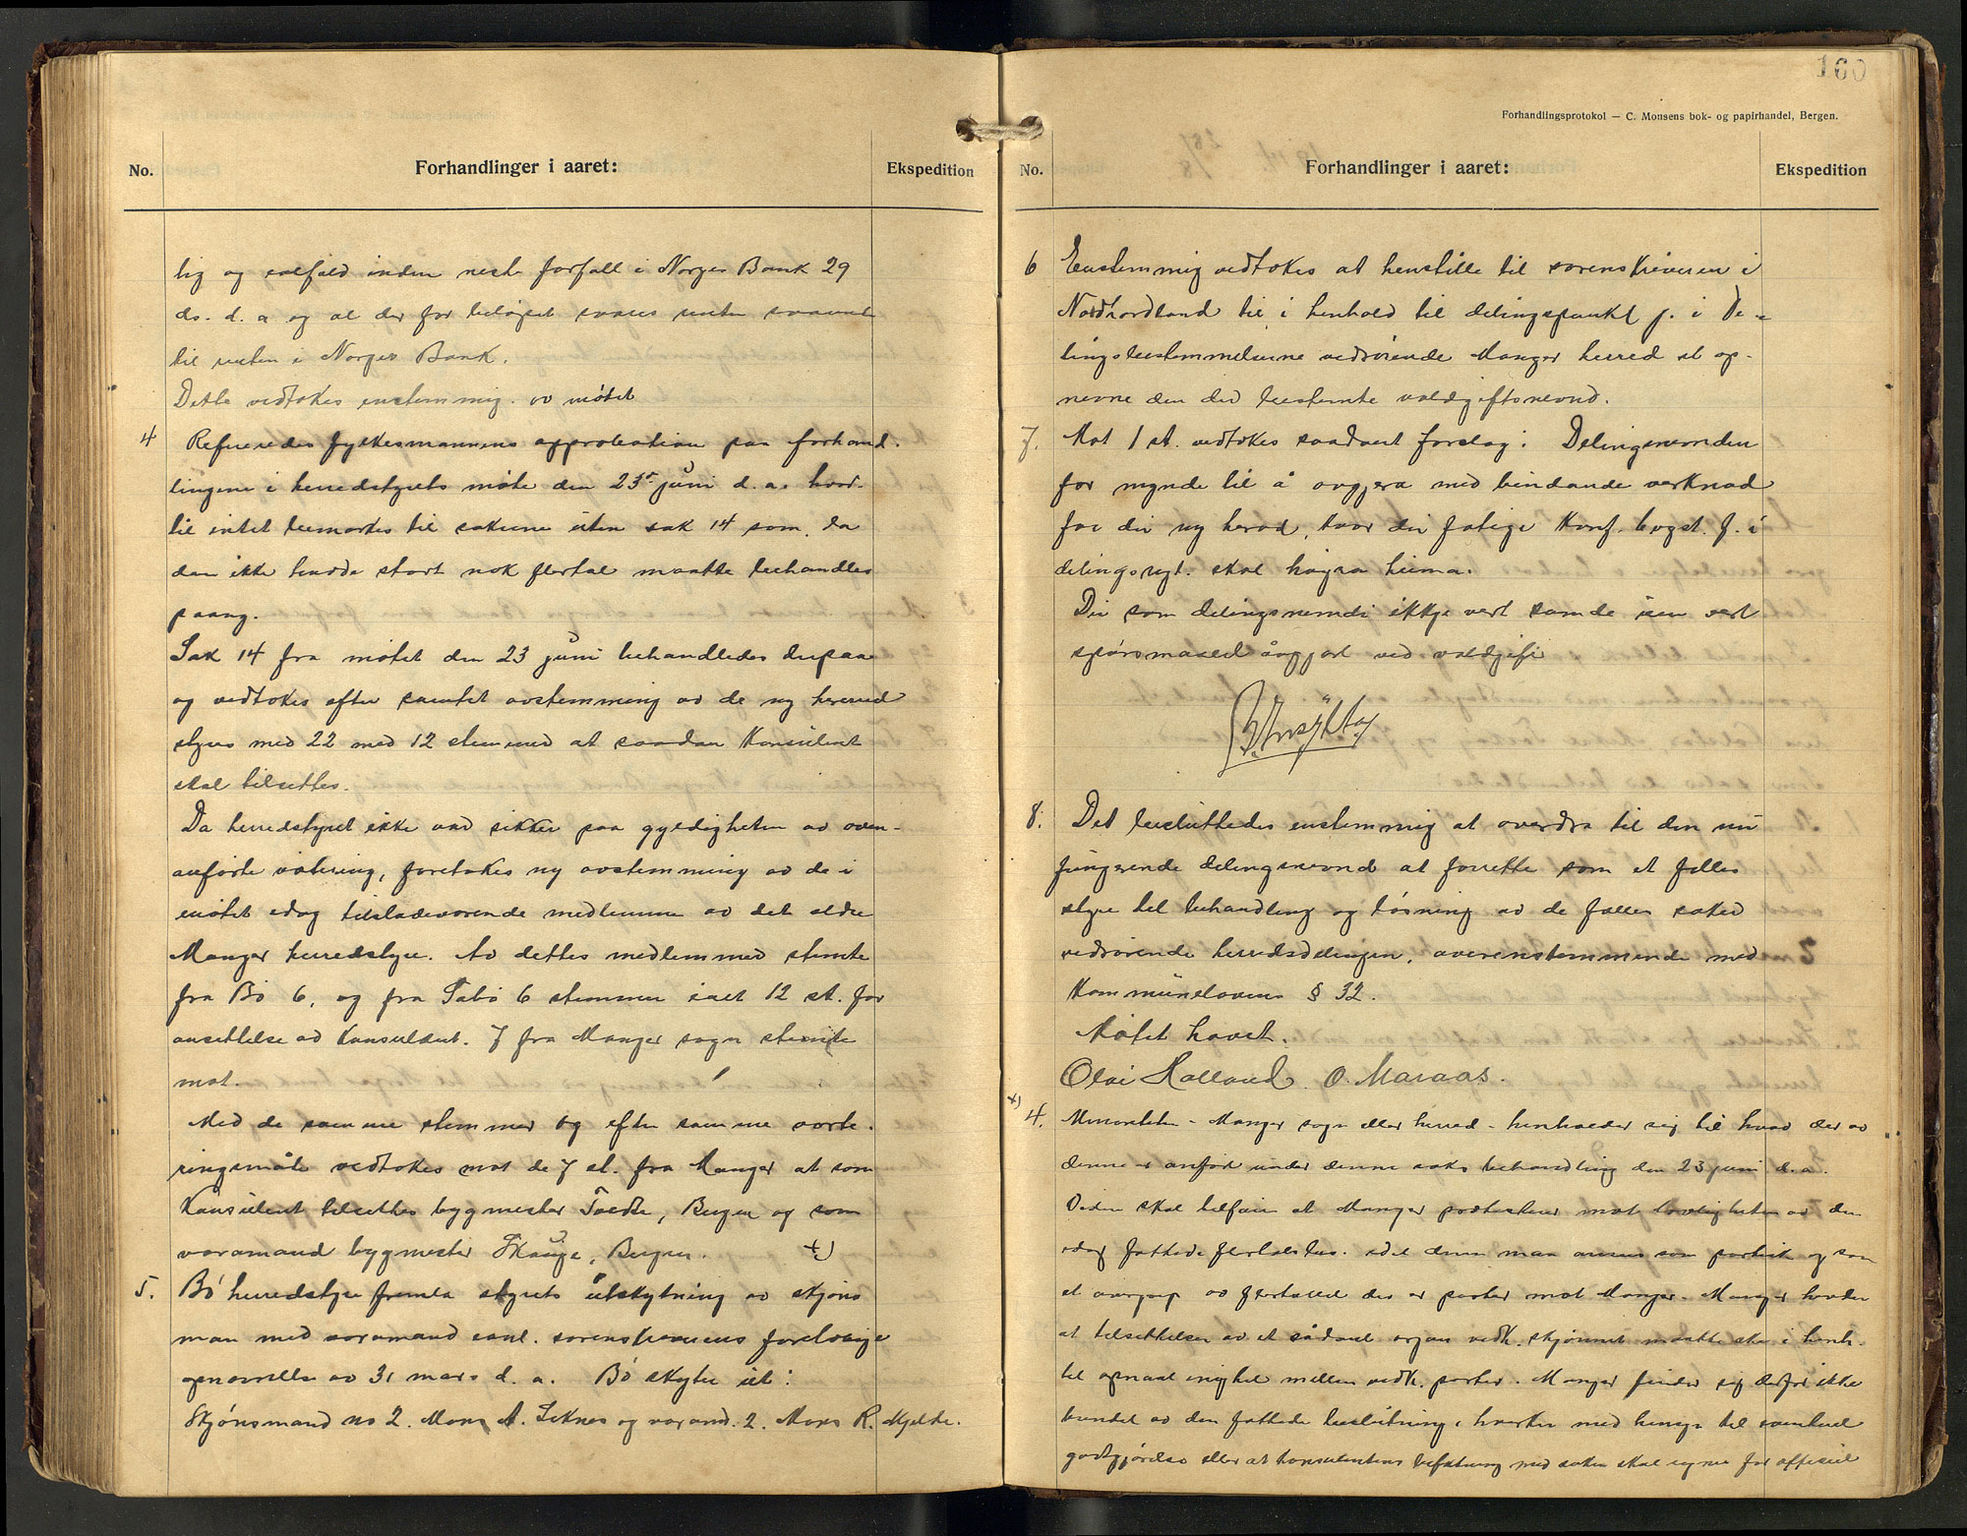 No.
Forhandlinger i aaret:
Ekspedition
lig og solfæld inden neste forfall i Norges Bank 29
ds. d. a og at der for beløpet svares renter svarende
til renten i Norges Bank.
Dette vedtokes enstemmig av møtet
4 Refereredes fylkesmannens approbation paa forhand-
lingene i herredstyrets møte den 23de juni d. a. hvor-
til intet bemerkes til sakerne uten sak 14 som, da
den ikke hadde stort nok flertal maatte behandles
paany.
Sak 14 fra møtet den 23 juni behandledes derpaa
og vedtokes efter samlet avstemming av de ny herred
styrer med 22 med 12 stemmer at saadan Konsulent
skal tilsettes.
Da herredstyret ikke var sikker paa gyldigheten av oven-
anførte votering, foretokes ny avstemming av de i
møtet idag tilstedeværende medlemmer av det eldre
Manger herredstyre. Av dettes medlemmer stemte
fra Bø 6, og fra Sæbø 6 stemmer ialt 12 st. for
ansettelse av Konsulent. 7 fra Manger sogn stemte
mot.
Med de samme stemmer og efter samme vote-
ringsmåte vedtokes mot de 7 st. fra Manger at som
Konsulent tilsettes bygmester Bergen og som
varamand bygmester Skauge, Bergen. x)
5. Bø herredstyre fremla styrets utskytning av skjøns
man med varamand sorenskriverens foreløbige
opnevnelse av 31 mars d. a. Bø skyter ut:
Skjønsmand no 2. Mons A. Seknes og varamd. 2. Mons R. Kjelde.
160
Forhandlingsprotokol — C. Monsens bok- og papirhandel, Bergen.
No.
Forhandlinger i aaret:
Ekspedition
6 Enstemmig vedtokes at henstille til sorenskriveren i
Nordhordland til i henhold til delingspunkt i De-
lingsbestemmelserne vedrørende Manger herred at op-
nevne den der bestemte voldgiftsnevnd.
7. Mot 1 st. vedtokes saadant forslag: Delingsnemnden
før mynde til å avgjera med bindande verknad
for dei ny herad, kvar dei i
delingsreglt. skal høyra heima.
Dei som delingsnemndi ikkje vert samde um vert
spørsmaalet avgjort ved voldgift
8. Det besluttedes enstemmig at overdra til den nu
fungerende delingsnevnd at forrette som et felles
styre til behandling og løsning av de felles saker
vedrørende herredsdelingen, overensstemmende med
Kommunelovens § 32.
Møtet hævet.
Olai Halland. O. Maraas.
x) 4. Minoriteten - Manger sogn eller herred - henholder sig til hvad der av
denne er anført under denne saks behandling den 23 juni d. a.
Videre skal tilføies at Manger protesterer mot lovligheten av den
idag fattede flertalsbes. idet denne maa ansees som partisk og som
et overgrep av flertallet der er parter mot Manger. Manger hevder
at tilsettelsen av et sådant organ vedk. skjønnet maatte ske i henh.
til opnaad enighet mellem vedk. parter. Manger finder sig derfor ikke
bundet av den fattede beslutning, hverken med hensyn til eventuel
godtgjørelse eller at konsulentens befatning med saken skal regnes for officiel